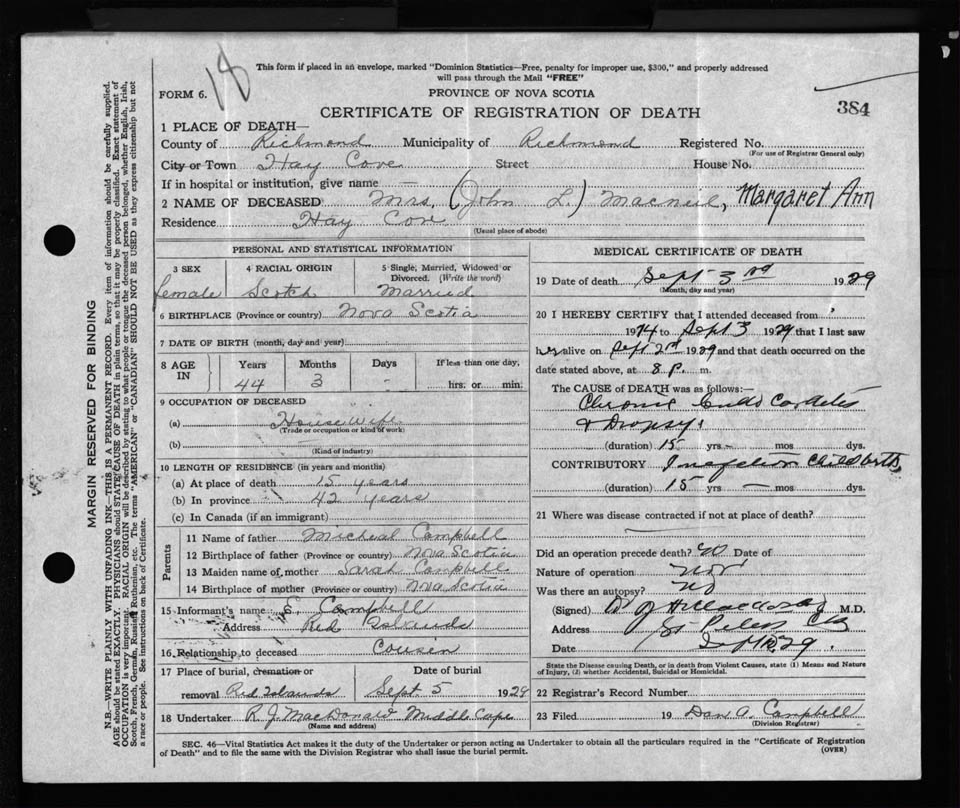 18
This form if placed in an envelope, marked "Dominion Statistics—Free, penalty for improper use, $300," and properly addressed
will pass through the Mail "FREE"
FORM 6.
PROVINCE OF NOVA SCOTIA
384
CERTIFICATE OF REGISTRATION OF DEATH
1 PLACE OF DEATH—
County of Richmond Municipality of Richmond Registered No.
(For use of Registrar General only)
City or Town Hay Cove Street House No.
If in hospital or institution, give name —
2 NAME OF DECEASED Mrs. (John L.) Macneil, Margaret Ann
Residence Hay Cove
(Usual place of abode)
PERSONAL AND STATISTICAL INFORMATION
3 SEX 4 RACIAL ORIGIN 5 Single, Married, Widowed or
Divorced. (Write the word)
female Scotch Married
6 BIRTHPLACE (Province or country) Nova Scotia
7 DATE OF BIRTH (month, day and year)
8 AGE IN Years Months Days If less than one day,
44 3 - hrs. or min.
9 OCCUPATION OF DECEASED
(a) Housewife
(Trade or occupation or kind of work)
(b)
(Kind of industry)
10 LENGTH OF RESIDENCE (in years and months)
(a) At place of death 15 years
(b) In province 42 years
(c) In Canada (if an immigrant)
Parents
11 Name of father Micheal Campbell
12 Birthplace of father (Province or country) Nova Scotia
13 Maiden name of mother Sarah Campbell
14 Birthplace of mother (Province or country) Nova Scotia
15 Informant's name S. Campbell
Address Red Islands
16 Relationship to deceased Cousen
17 Place of burial, cremation or Date of burial
removal Red Islands Sept 5 1929
18 Undertaker R. J. MacDonald Middle Cape
(Name and address)
MEDICAL CERTIFICATE OF DEATH
19 Date of death Sept 3rd 1929
(Month, day and year)
20 I HEREBY CERTIFY that I attended deceased from
1914 to Sept 3 1929 that I last saw
her alive on Sept 2nd 1929 and that death occurred on the
date stated above, at 8 P. m.
The CAUSE of DEATH was as follows:—
Chronic Endo Cardites
& Dropsy
(duration) 15 yrs — mos dys.
CONTRIBUTORY Childbirth
(duration) 15 yrs — mos dys.
21 Where was disease contracted if not at place of death?
Did an operation precede death? No Date of
Nature of operation
Was there an autopsy? No
(Signed) M.D.
Address St Peters CB
Date 29
State the Disease causing Death, or in death from Violent Causes, state (1) Means and Nature
of Injury, (2) whether Accidental, Suicidal or Homicidal.
22 Registrar's Record Number
23 Filed 19 Dan A. Campbell
(Division Registrar)
SEC. 46—Vital Statistics Act makes it the duty of the Undertaker or person acting as Undertaker to obtain all the particulars required in the "Certificate of Registration
of Death" and to file the same with the Division Registrar who shall issue the burial permit.
(OVER)
MARGIN RESERVED FOR BINDING
N.B.—WRITE PLAINLY WITH UNFADING INK—THIS IS A PERMANENT RECORD. Every item of information should be carefully supplied.
AGE should be stated EXACTLY. PHYSICIANS should STATE CAUSE OF DEATH in plain terms, so that it may be properly classified. Exact statement of
OCCUPATION is very important. RACIAL ORIGIN will be described by stating to what people or tongue the deceased person belonged, whether English, Irish,
Scotch, French, German, Russian, Ruthenian, etc. The terms "AMERICAN" or "CANADIAN" SHOULD NOT BE USED as they express citizenship but not
a race or people. See instructions on back of Certificate.